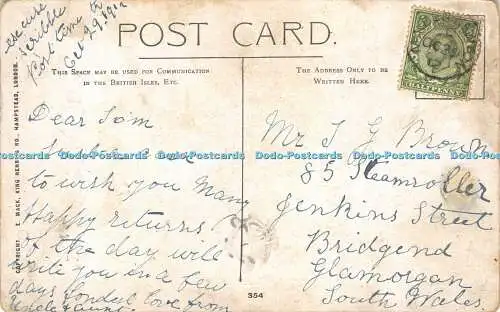 excuse
scribble
Post time
Oct 29. 1912
POST CARD.
THIS SPACE MAY BE USED FOR COMMUNICATION
IN THE BRITISH ISLES, ETC.
THE ADDRESS ONLY TO BE
WRITTEN HERE.
HALFPENNY
COPYRIGHT. E. MACK, KING HENRY'S RD., HAMPSTEAD, LONDON.
Dear Tom
to wish you Many
Happy returns
of the day will
write you in a few
days fondest love from
Uncle & aunt
Mr T G Brown
85 Steamroller
Jenkins Street
Bridgend
Glamorgan
South Wales.
354
Dodo-Postcards Dodo-Postcards Dodo-Postcards Dodo-Postcards Dodo-Postcards